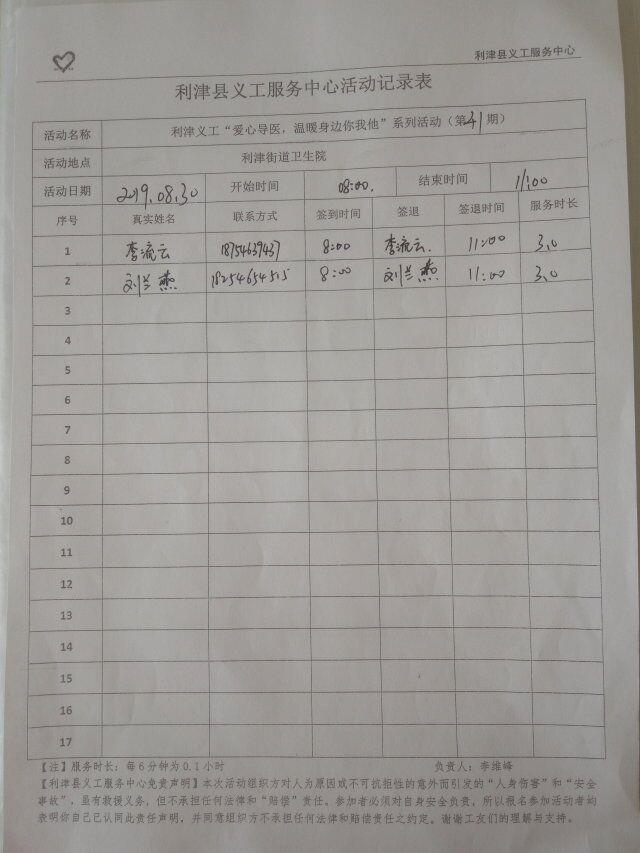 利津县义工服务中心
利津县义工服务中心活动记录表
活动名称 利津义工“爱心导医，温暖身边你我他”系列活动（第41期）
活动地点 利津街道卫生院
活动日期 2019.08.30 开始时间 08:00. 结束时间 11:00
序号 真实姓名 联系方式 签到时间 签退 签退时间 服务时长
1 李流云 18754639437 8:00 李流云. 11:00 3.0
2 刘兰燕 18254654515 8:00 刘兰燕 11:00 3.0
3
4
5
6
7
8
9
10
11
12
13
14
15
16
17
【注】服务时长：每6分钟为0.1小时 负责人：李维峰
【利津县义工服务中心免责声明】本次活动组织方对人为原因或不可抗拒性的意外而引发的“人身伤害”和“安全
事故”，虽有救援义务，但不承担任何法律和“赔偿”责任。参加者必须对自身安全负责，所以报名参加活动者均
表明你自己已认同此责任声明，并同意组织方不承担任何法律和赔偿责任之约定。谢谢工友们的理解与支持。